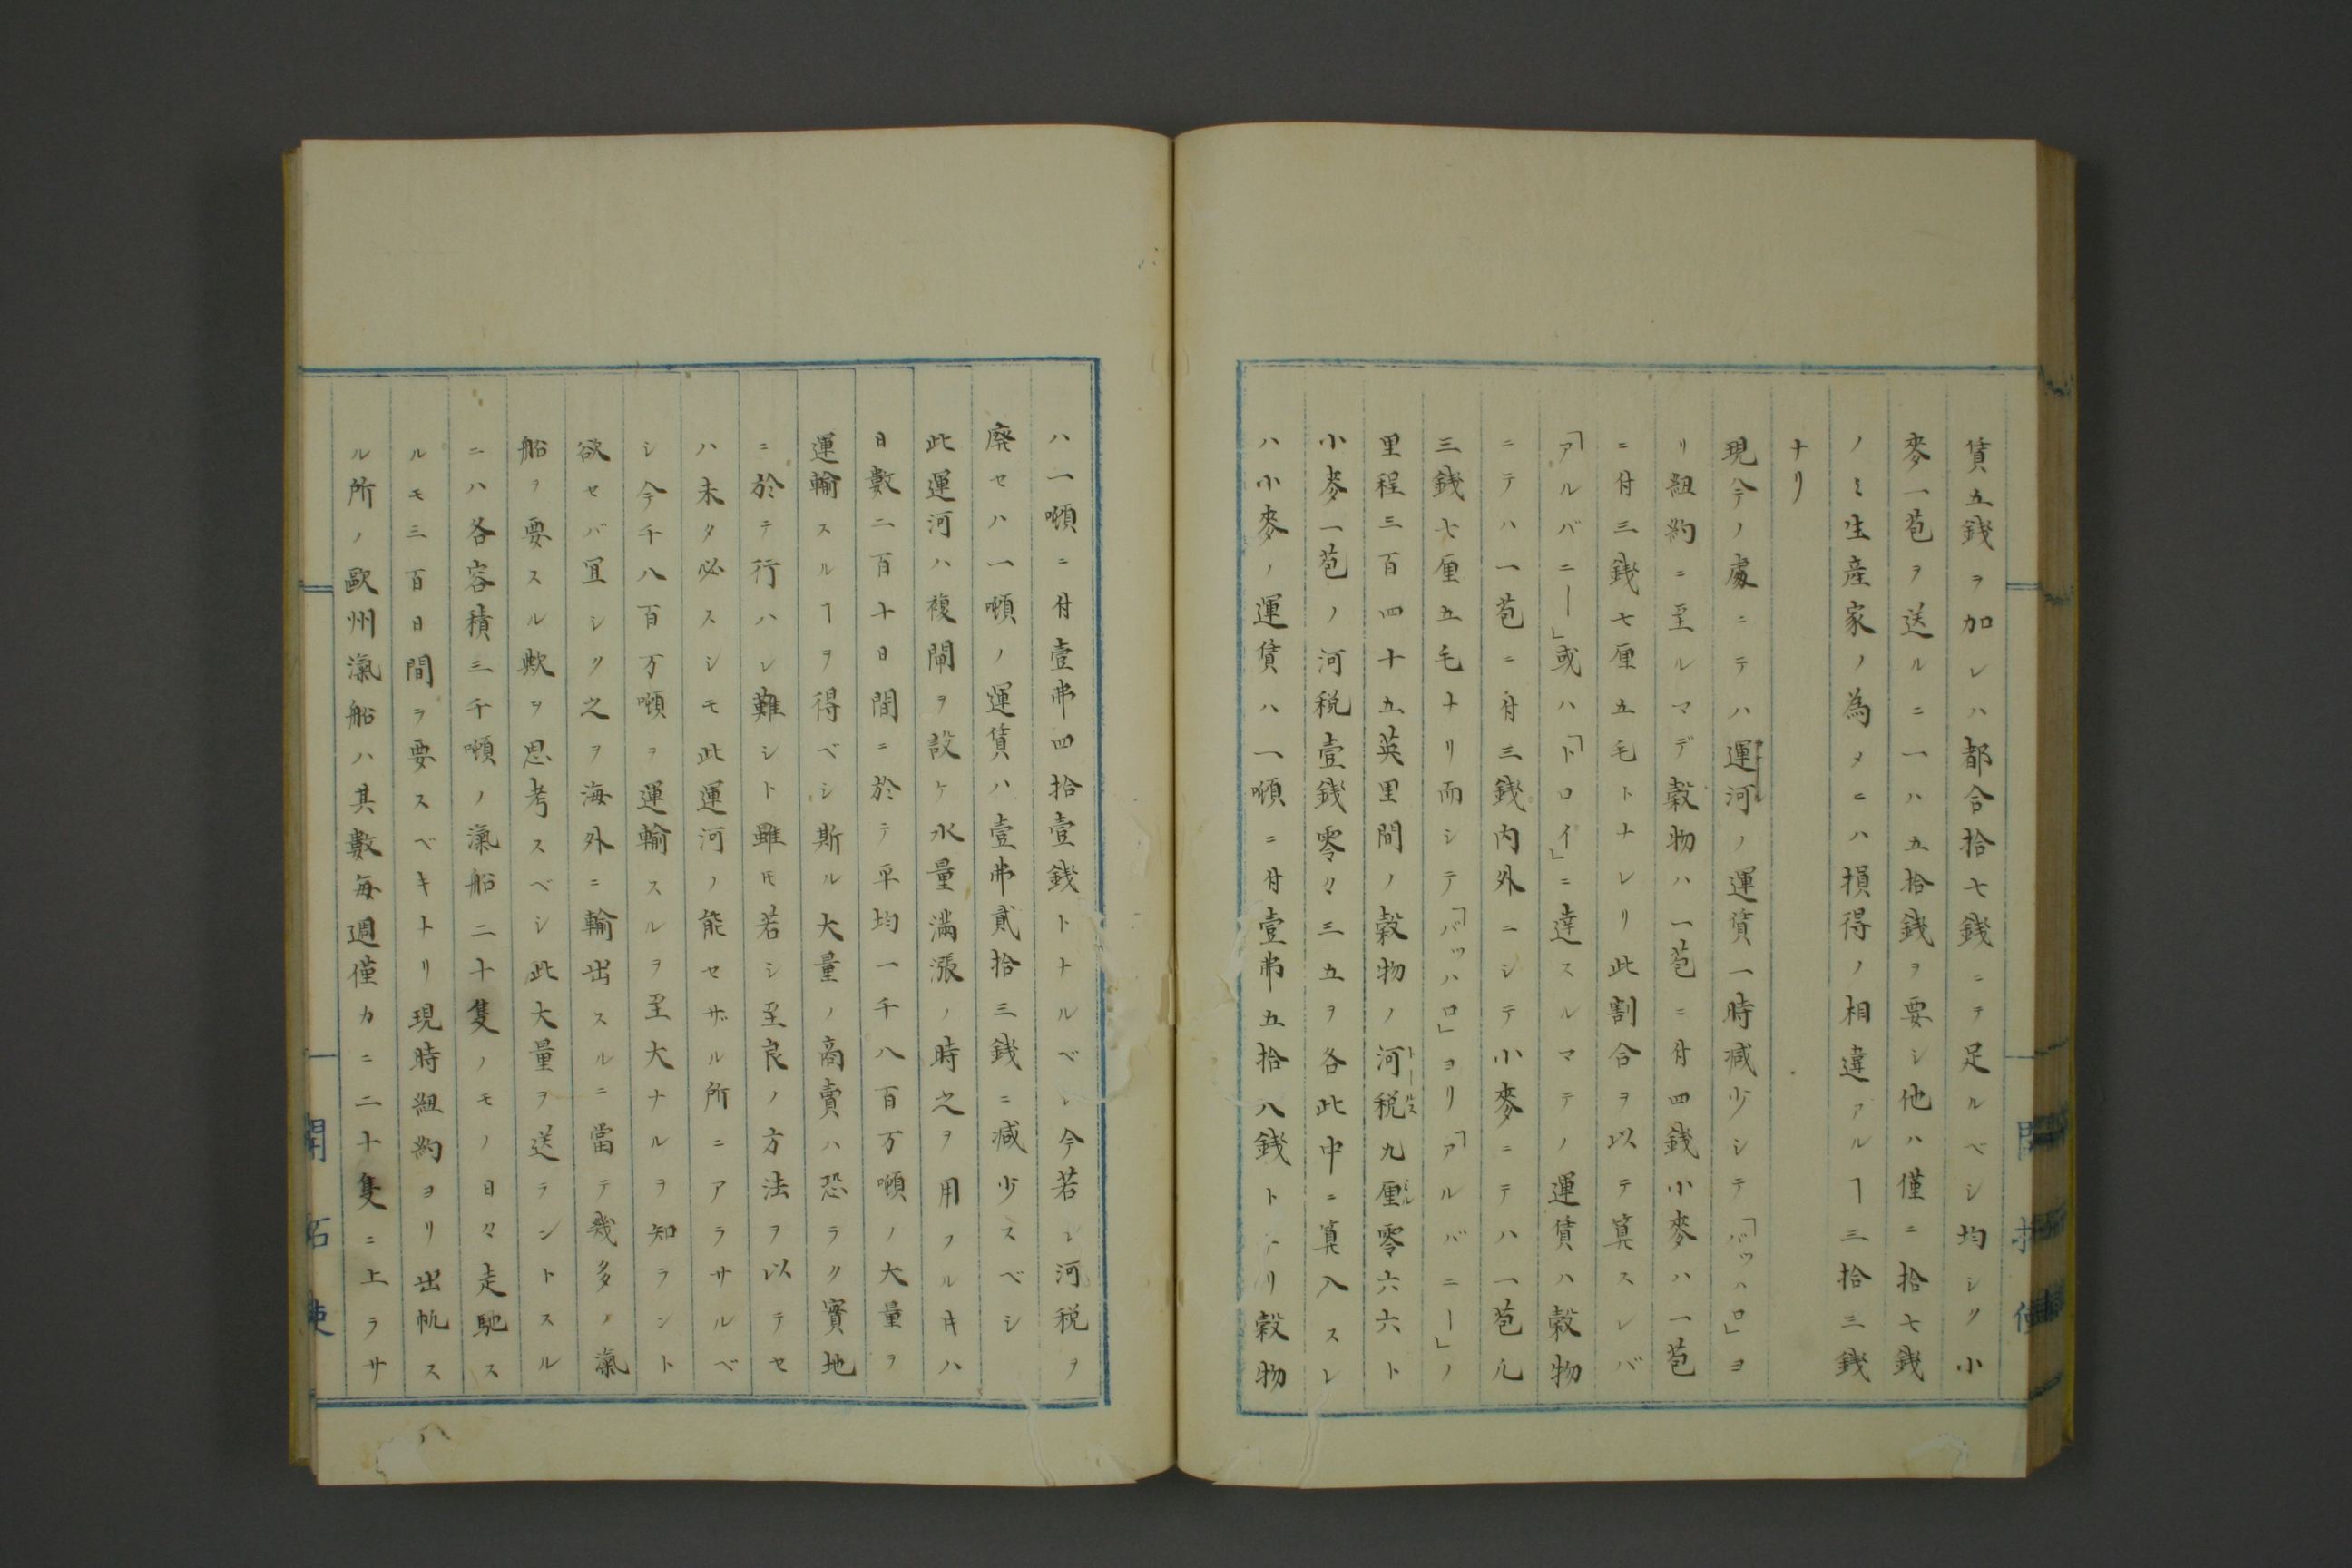 賃五錢ヲ加レハ都合拾七錢ニテ足ルベシ均シク小
麥一苞ヲ送ルニ一ハ五拾錢ヲ要シ他ハ僅ニ拾七錢
ノミ生産家ノ為メニハ損得ノ相違アルヿ三拾三錢
ナリ
現今ノ處ニテハ運河ノ運賃一時減少シテ「バッハロ」ヨ
リ紐約ニ至ルマデ穀物ハ一苞ニ付四錢小麥ハ一苞
ニ付三錢七厘五毛トナレリ此割合ヲ以テ算スレバ
「アルバニー」或ハ「トロイ」ニ達スルマテノ運賃ハ穀物
ニテハ一苞ニ付三錢内外ニシテ小麥ニテハ一苞凡
三錢七厘五毛ナリ而シテ「バッハロ」ヨリ「アルバニー」ノ
里程三百四十五英里間ノ穀物ノ河税九厘零六六ト
小麥一苞ノ河税壹錢零々三五ヲ各此中ニ算入スレ
ハ小麥ノ運賃ハ一噸ニ付壹弗五拾八錢トナリ穀物
ハ一噸ニ付壹弗四拾壹錢トナルベシ今若シ河税ヲ
廃セハ一噸ノ運賃ハ壹弗貳拾三錢ニ減少スベシ
此運河ハ複閘ヲ設ケ水量満漲ノ時之ヲ用フルキハ
日數二百十日間ニ於テ平均一千八百万噸ノ大量ヲ
運輸スルヿヲ得ベシ斯ル大量ノ商賣ハ恐ラク實地
ニ於テ行ハレ難シト雖モ若シ至良ノ方法ヲ以テセ
ハ未タ必スシモ此運河ノ能セザル所ニアラサルベ
シ今千八百万噸ヲ運輸スルヲ至大ナルヲ知ラント
欲セバ宜シク之ヲ海外ニ輸出スルニ當テ幾多ノ滊
船ヲ要スル歟ヲ思考スベシ此大量ヲ送ラントスル
ニハ各容積三千噸ノ滊船二十隻ノモノ日々走馳ス
ルモ三百日間ヲ要スベキトリ現時紐約ヨリ出帆ス
ル所ノ歐州滊船ハ其數毎週僅カニ二十隻ニ上ラサ
開拓使
八